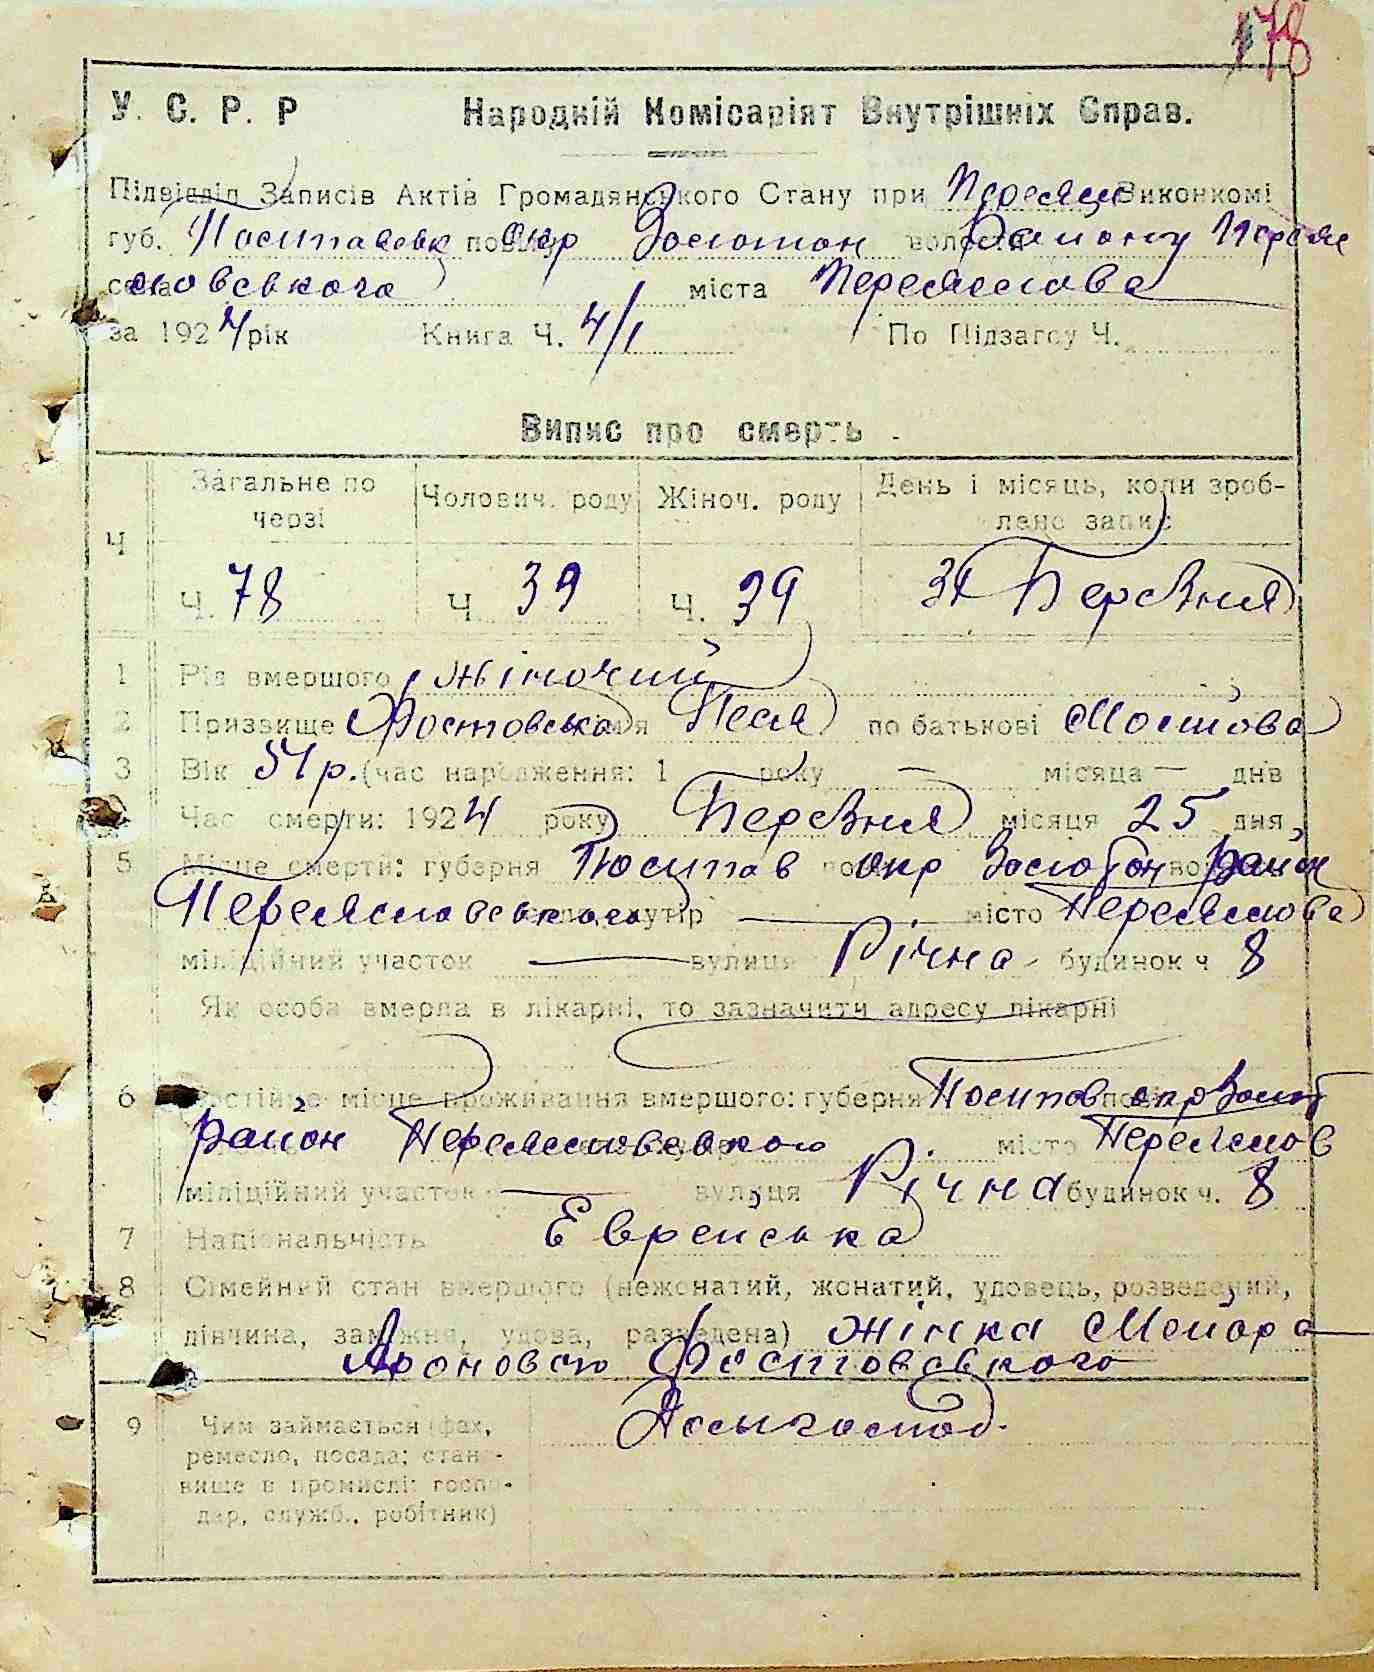 178
У. С. Р. Р Народній Комісаріят Внутрішніх Справ.
Підвідділ Записів Актів Громадянського Стану при Переясл Виконкомі
губ. Полтавськ повіту окр Золотон волости Району Переяс
села ловського міста Переяслова
за 1924 рік Книга Ч. 4/1 По Підзагсу Ч.
Випис про смерть
Ч Загальне по черзі Чолович. роду Жіноч. роду День і місяць, коли зроблено запис
Ч. 78 Ч. 39 Ч. 39 31 Березня
1 Рід вмершого Жіночий
2 Призвище Фостовська імя Песя по батькові Мошкова
3 Вік 54 р. (час народження: 1 року — місяца — днів
Час смерти: 1924 року Березня місяця 25 дня,
5 Місце смерти: губерня Полтав окр Золотон район
Переяславського хутір — місто Переяслова
міліційний участок — вулиця Річна будинок ч 8
Як особа вмерла в лікарні, то зазначити адресу лікарні
6 Постійне місце проживання вмершого: губерня Полтав окр Золот
район Переясловського місто Переяслов
міліційний участок — вулиця Річна будинок ч. 8
7 Національність Еврейська
8 Сімейний стан вмершого (нежонатий, жонатий, удовець, розведений,
дівчина, заміжня, удова, разведена) жінка Мейора
Ароновою Фостовського
9 Чим займається (фах,
ремесло, посада; стан-
вище в промислі: госпо-
дар, служб., робітник)
Домогоспод.